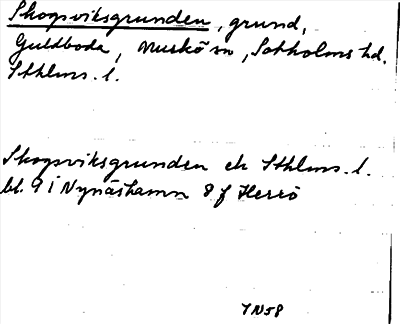 Skogsviksgrunden, grund,
Guldboda, Muskö sn, Sotholms hd.
Sthlms. l.
Skogsviksgrunden ek Sthlms. l.
bl. 9 i Nynäshamn 8 f Herrö
IN58